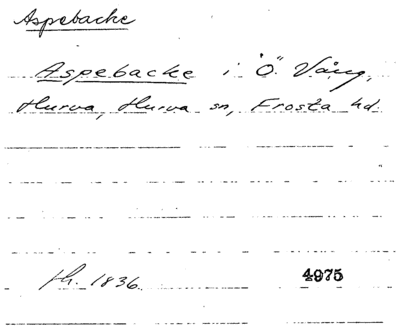 Aspebacke
Aspebacke i "Ö. Vång,
Hurva, Hurva sn, Frosta hd.
fh. 1836. 4975